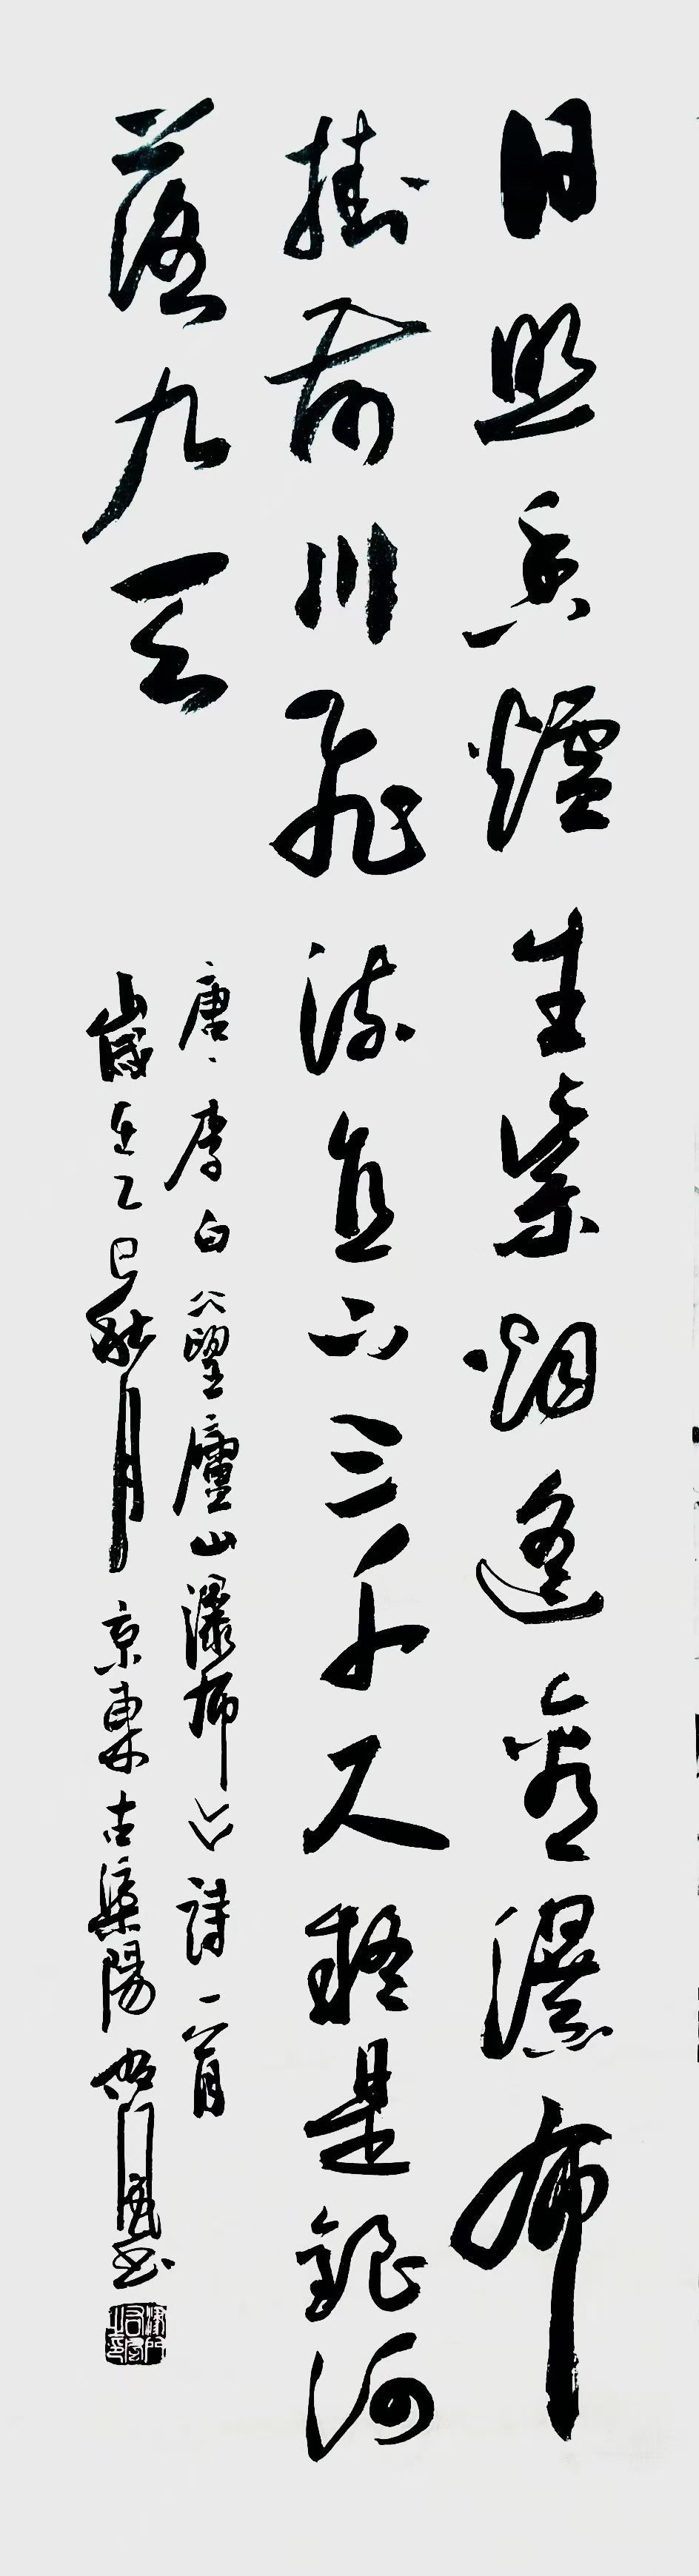 日照香爐生紫烟遥看瀑布
掛前川飛流直下三千尺疑是銀河
落九天
唐、李白《望廬山瀑布》詩一首
歲在乙巳秋月京東古漁陽